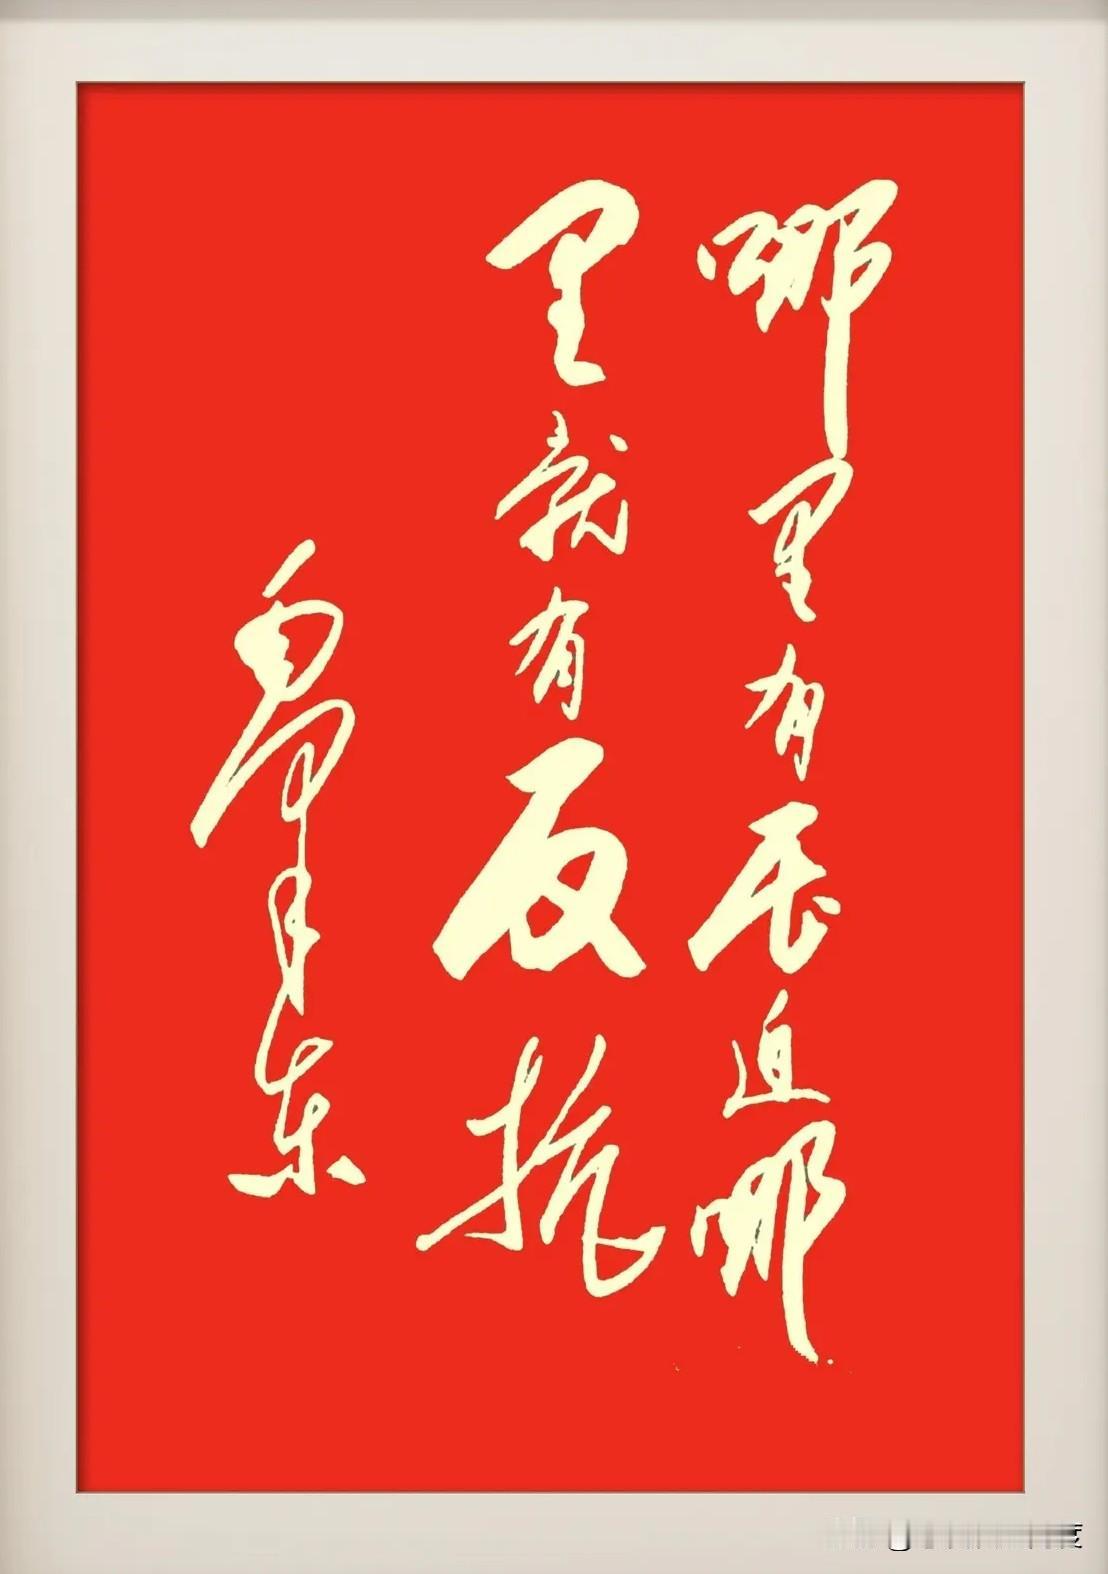 哪里有压迫哪
里就有反抗
毛泽东